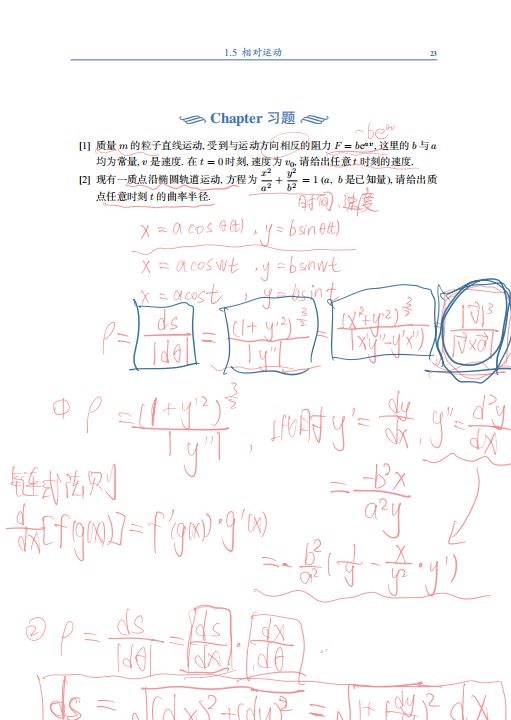 1.5 相对运动
23
Chapter 习题
~be^{av}
[1] 质量 m 的粒子直线运动, 受到与运动方向相反的阻力 F = be^{av}, 这里的 b 与 a
均为常量, v 是速度. 在 t = 0 时刻, 速度为 v_0, 请给出任意 t 时刻的速度.
[2] 现有一质点沿椭圆轨道运动, 方程为 x^2/a^2 + y^2/b^2 = 1 (a, b 是已知量), 请给出质
点任意时刻 t 的曲率半径.
时间、速度
x = a cos θ(t), y = b sin θ(t)
x = a cos wt, y = b sin wt
x = a cos t, y = b sin t
ρ = ds/|dθ| = (1+y'^2)^{3/2}/|y''| = (x'^2+y'^2)^{3/2}/|x'y''-y'x''| = |v⃗|^3/|v⃗×a⃗|
① ρ = (1+y'^2)^{3/2}/|y''|, 此时 y' = dy/dx, y'' = d^2y/dx
= -b^2x/a^2y
链式法则
d/dx[f(g(x))] = f'(g(x))·g'(x)
= -b^2/a^2(1/y - x/y^2·y')
② ρ = ds/|dθ| = |ds/dx|·|dx/dθ|
ds = √((dx)^2+(dy)^2) = √(1+(dy/dx)^2) dx